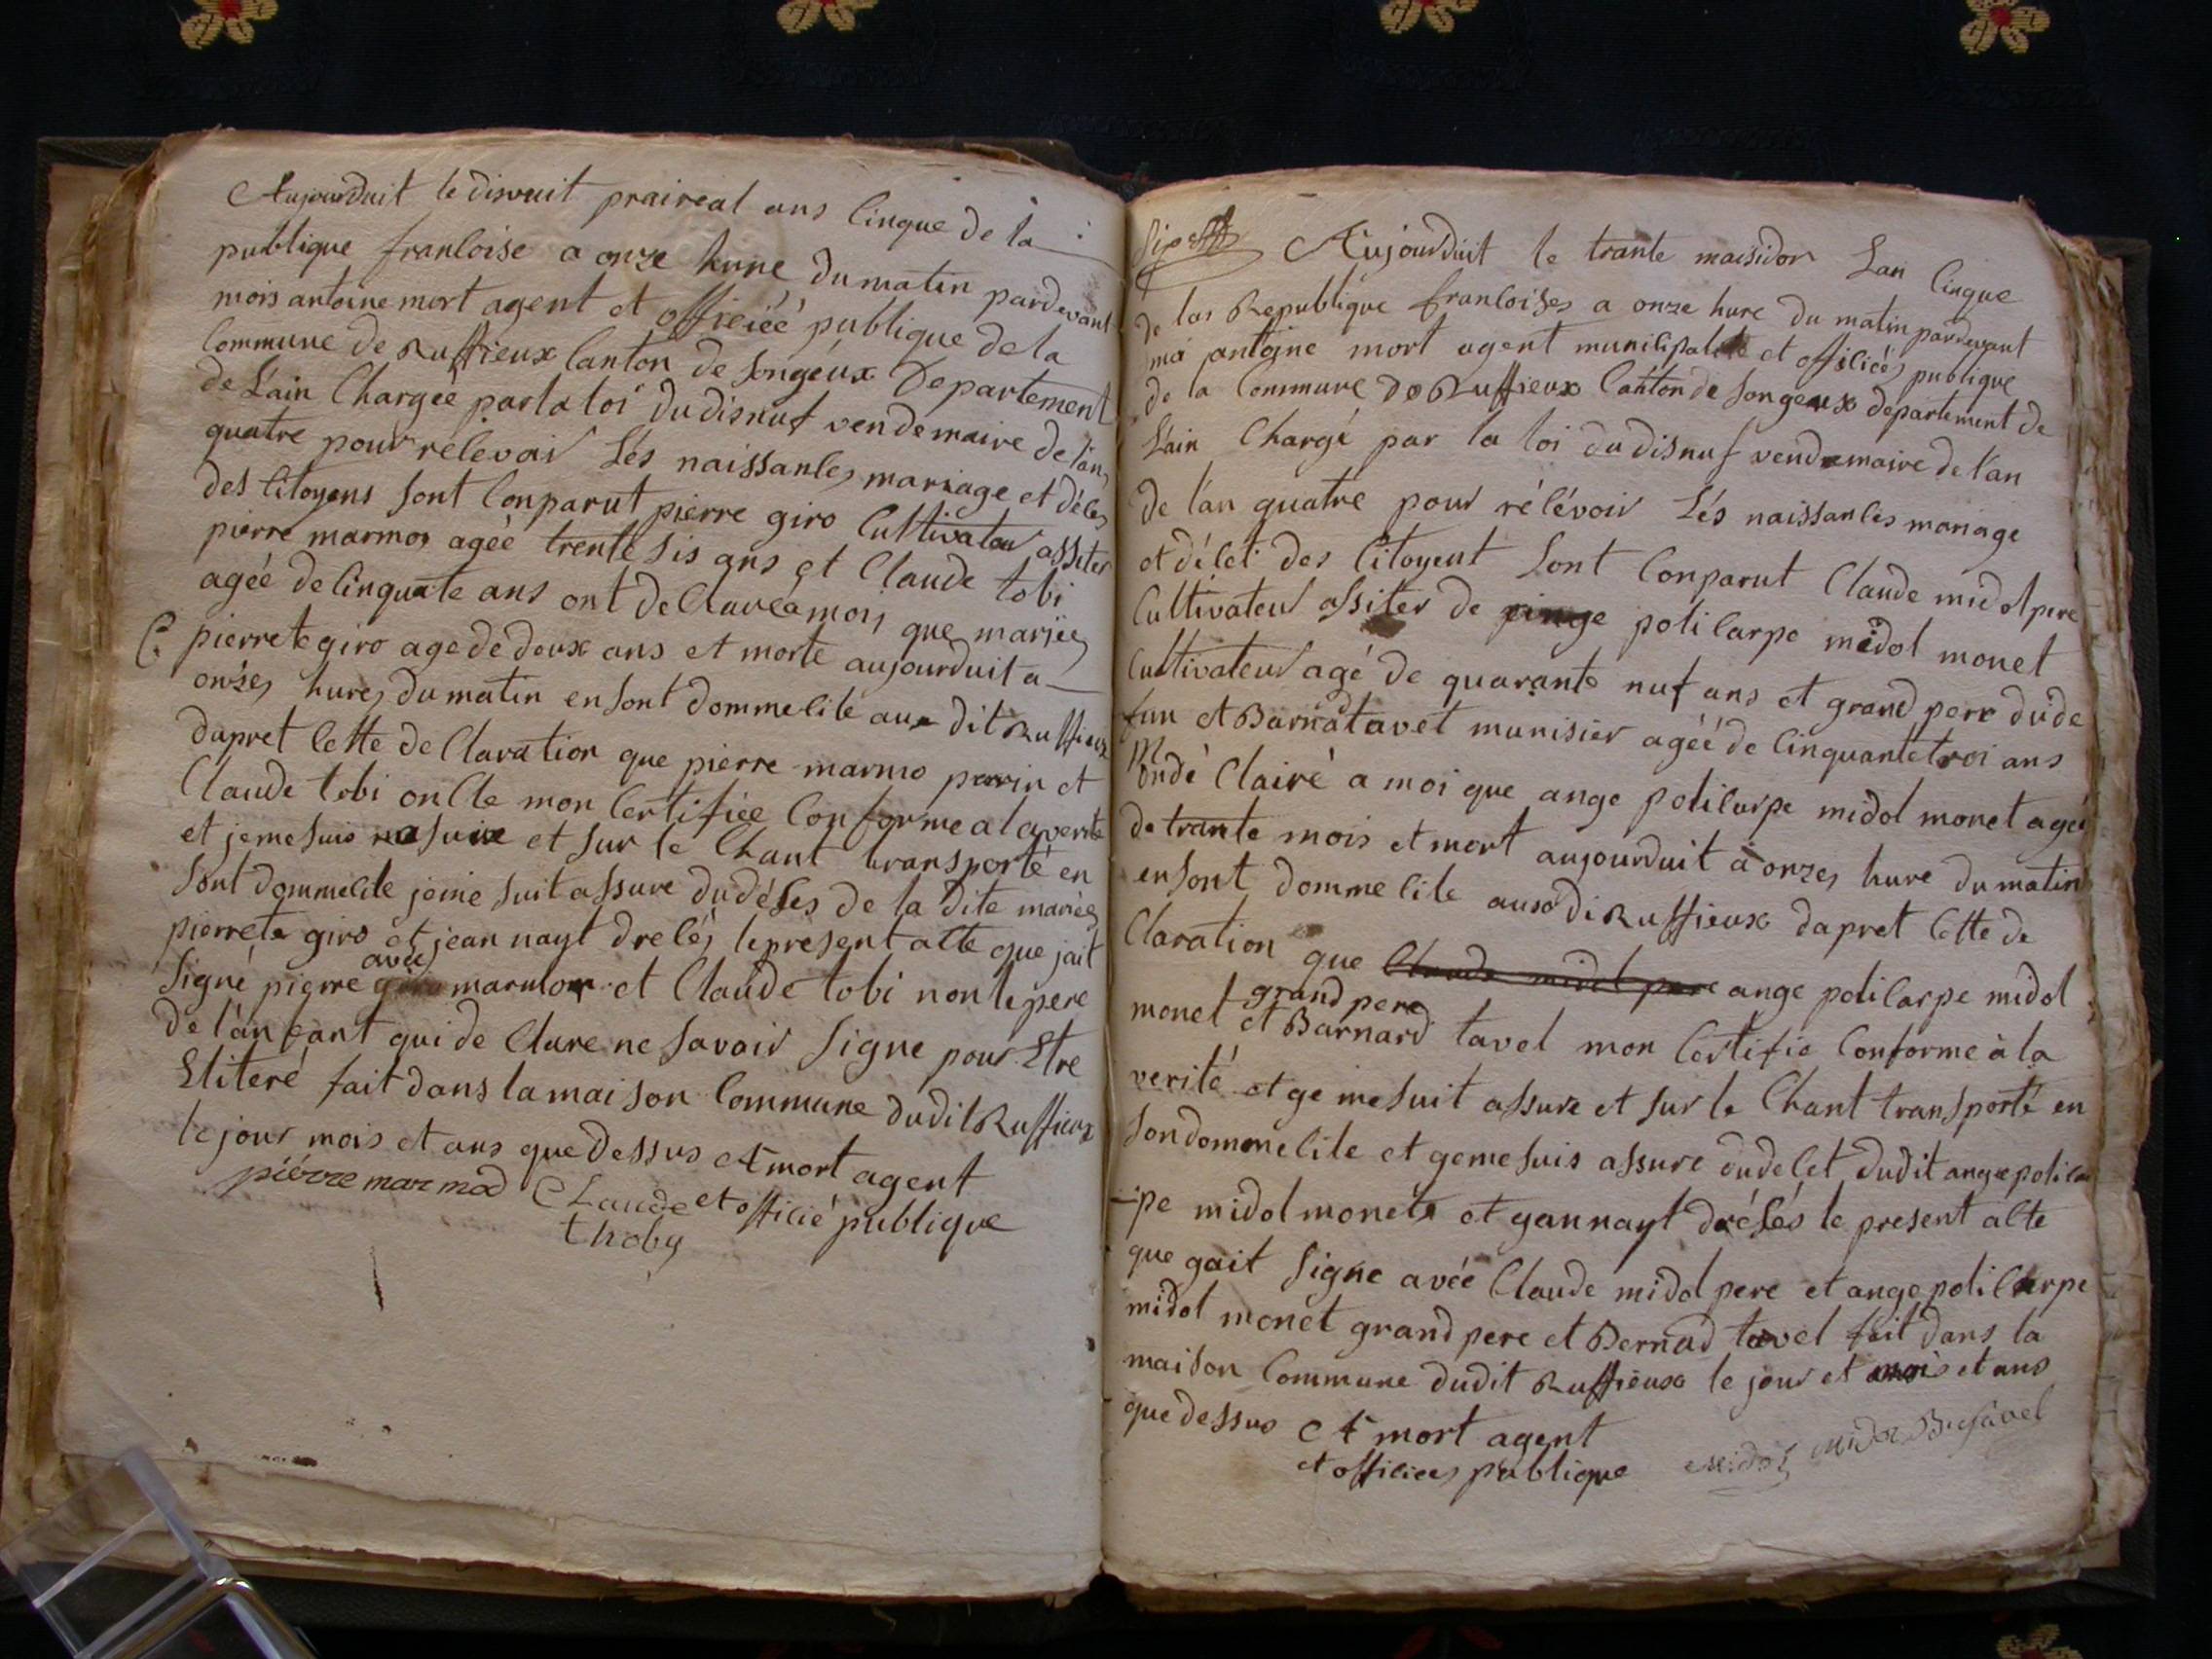 Aujourduit le disvuit praireal ans cinque de la
publique francoise a onze hure du matin pardevant
mois antoine mort agent et officiéé publique de la
commune de Ruffieux canton de songéux Departement
de L'ain Chargée par la loi du disnuf vendemaire de l'an
quatre pour rélévoir Lés naissances mariage et déces
des citoyens sont comparut pierre giro Cultivateur assiter
pierre marmos agéé trente sis ans et Claude tobi
agéé de cinquate ans ont declareà mois que mariée
pierrete giro age de deux ans et morte aujourduit a
onzes hures du matin en sont dommecile au dit Ruffieux
dapret cette declaration que pierre marmo parrin et
Claude tobi on cte mon certifiée conforme a la verite
et je me suis et sur le Chant transporté en
sont dommecile jeme suit assure dudéses de la dite mariée
pierrete giro et jean nayt drecés le present acte que jait
avec
signé pierre marmor et Claude tobi non le pere
de l'anfant qui declare ne savoir signe pour Etre
Eliteré fait dans la maison commune dudit Ruffieux
le jour mois et ans que dessus A mort agent
piérre marmod Claude et officié publique
thoby
Aujourduit le trante maisidor Lan cinque
de las Republique francoises a onze hure du matin pardevant
moi antoine mort agent municipalite et officiéé publique
de la commune de Ruffieux canton de songeux departement de
L'ain Chargé par la loi du disnuf vendemaire de l'an
de l'an quatre pour rélévoir Lés naissances mariage
et décet des citoyent sont comparut Claude midol pere
Cultivateur assiter de policarpe midol monet
Cultivateur agé de quarante nuf ans et grand pere dude
fun et Barnad tavet munisier agéé de cinquante troi ans
M ondé Clairé a moi que ange policarpe midol monet agéé
de trante mois et mort aujourduit à onzes hure du matin
en sont dommecile auso di Ruffieux dapret cette de
Claration que Claude midol pere ange policarpe midol
grand pere
monet et Barnard tavel mon certifie conforme à la
verité et ge me suit assure et sur le Chant transporté en
son dommecile et geme suis assure dudecet dudit ange polica
-pe midol monete et gan nayt drésés le present acte
que gait signe avéé Claude midol pere et ange policarpe
midol monet grand pere et Bernad tavel fait dans la
maison commune dudit Ruffieux le jour et mois et ans
que dessus A mort agent
et officiee publique midol midol